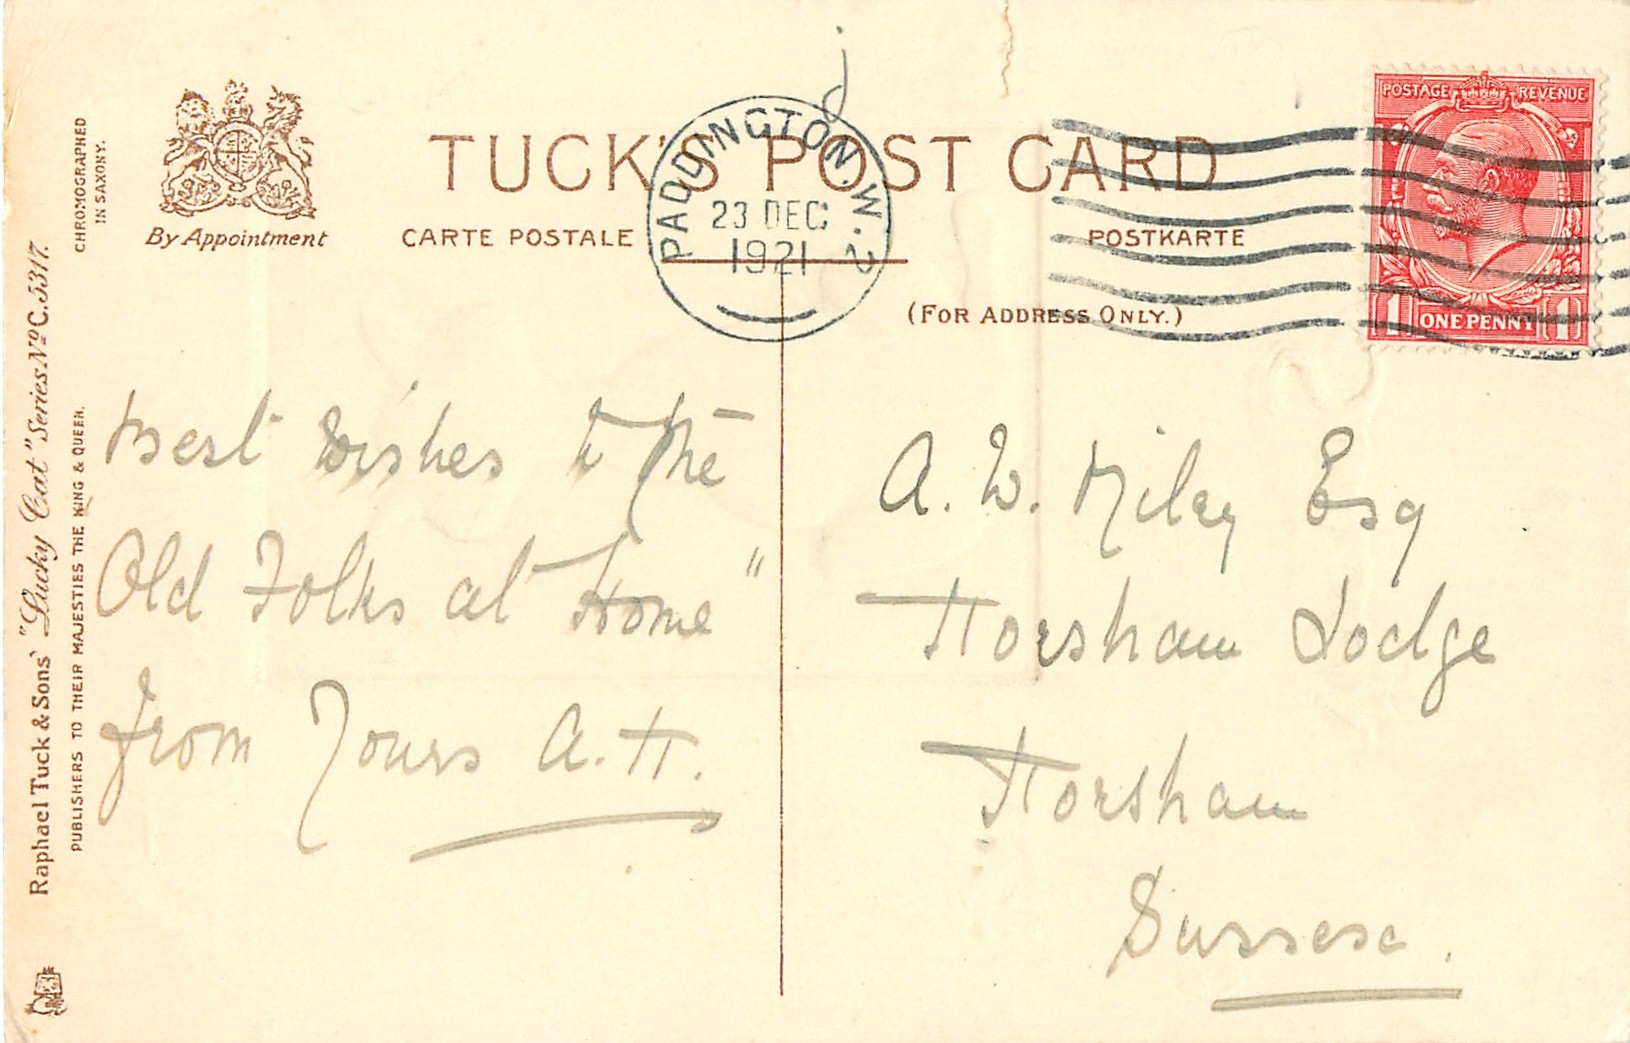 CHROMOGRAPHED
IN SAXONY.
By Appointment
TUCK'S POST CARD
CARTE POSTALE
POSTKARTE
(FOR ADDRESS ONLY.)
PADDINGTON. W. 2
23 DEC
1921
POSTAGE REVENUE
1 ONE PENNY 1
Raphael Tuck & Sons' "Lucky Cat" Series. No C. 3317.
PUBLISHERS TO THEIR MAJESTIES THE KING & QUEEN.
Best Wishes to the
Old Folks at Home"
from Yours A.H.
A. W. Riley Esq
Horsham Lodge
Horsham
Sussex.